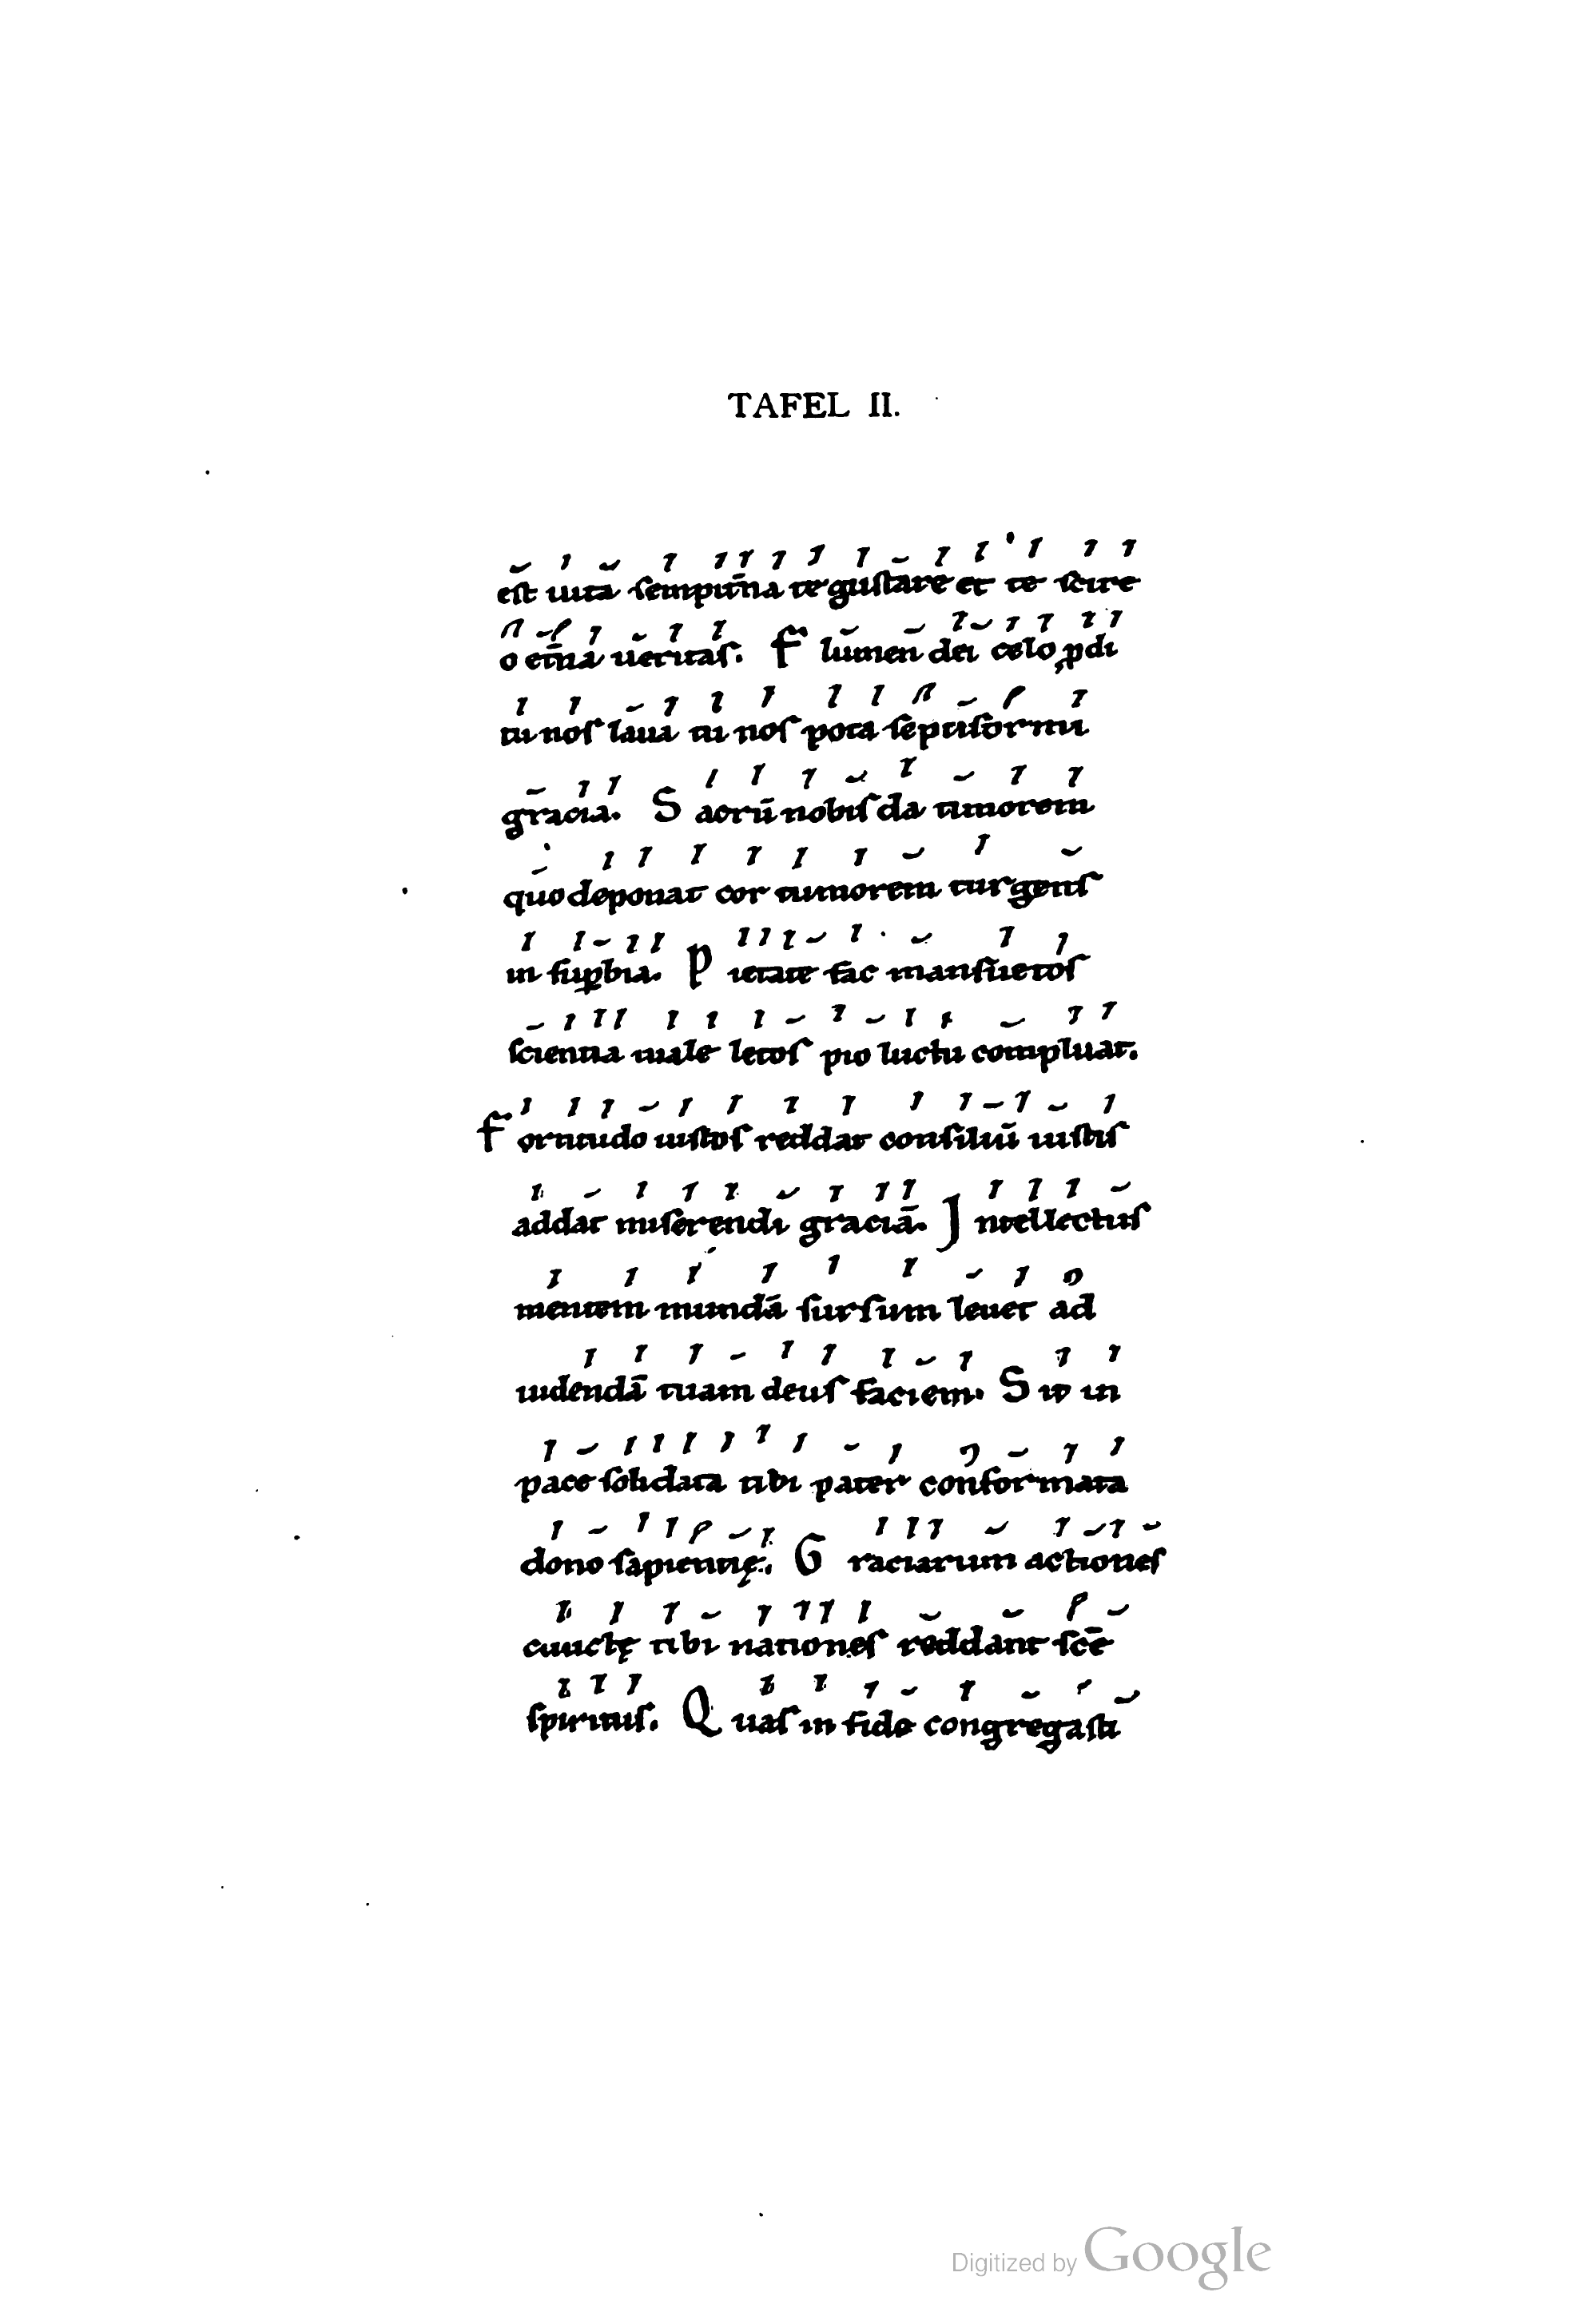 TAFEL II.
est uita sempit̄na te gustare et te scire
o et̄na ueritas. F lumen dei celo ꝓdi
tu nos laua tu nos pota septiformi
gracia. S acrū nobis da timorem
quo deponat cor tumorem turgens
in suꝑbia. P ietate fac mansuetos
scientia male letos pio luctu compluat.
F ortitudo iustos reddat consiliū iustis
addat miserendi graciā. I ntellectus
mentem mundā sursum leuet ad
uidendā tuam deus faciem. S ic in
pace solidata tibi pater conformata
dono sapientię. G raciarum actiones
cunctę tibi nationes reddant sc̄e
spiritus. Q uas in fide congregasti
Digitized by Google